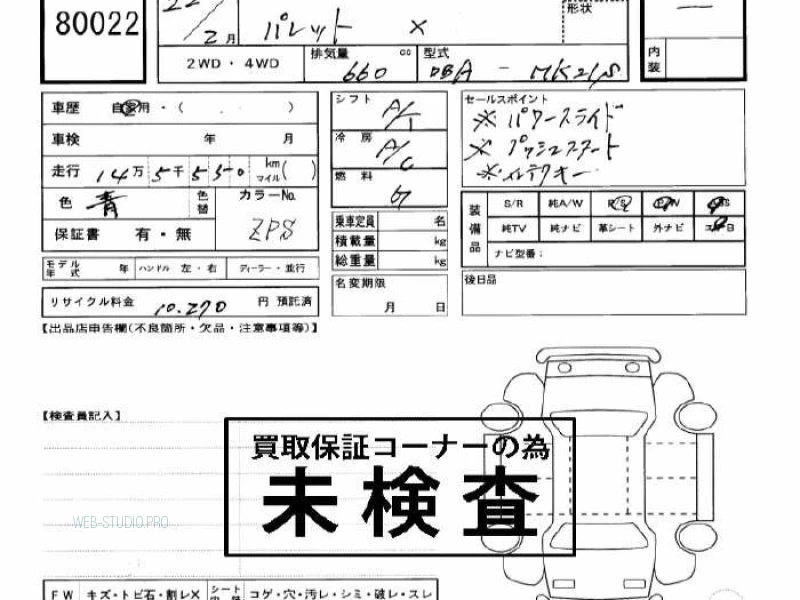 80022
22/2月 パレット X
形状
内装
2WD・4WD 排気量 cc 660 型式 DBA - MK21S
車歴 自家用・( )
車検 年 月
走行 14万5千530 km マイル( )
色 青 色替 カラーNo. ZPS
保証書 有・無
シフト A/T
冷房 A/C
燃料 G
乗車定員 名
積載量 kg
総重量 kg
名変期限 月 日
セールスポイント
※パワースライド
※プッシュスタート
※インテリキー
装備品 S/R 純A/W P/S P/W ABS
純TV 純ナビ 革シート 外ナビ エアB
ナビ型番:
後日品
モデル年式 年 ハンドル 左・右 ディーラー・並行
リサイクル料金 10,270 円 預託済
【出品店申告欄(不良箇所・欠品・注意事項等)】
【検査員記入】
買取保証コーナーの為
未検査
WEB-STUDIO.PRO
FW キズ・トビ石・割レX シート コゲ・穴・汚レ・シミ・破レ・スレ